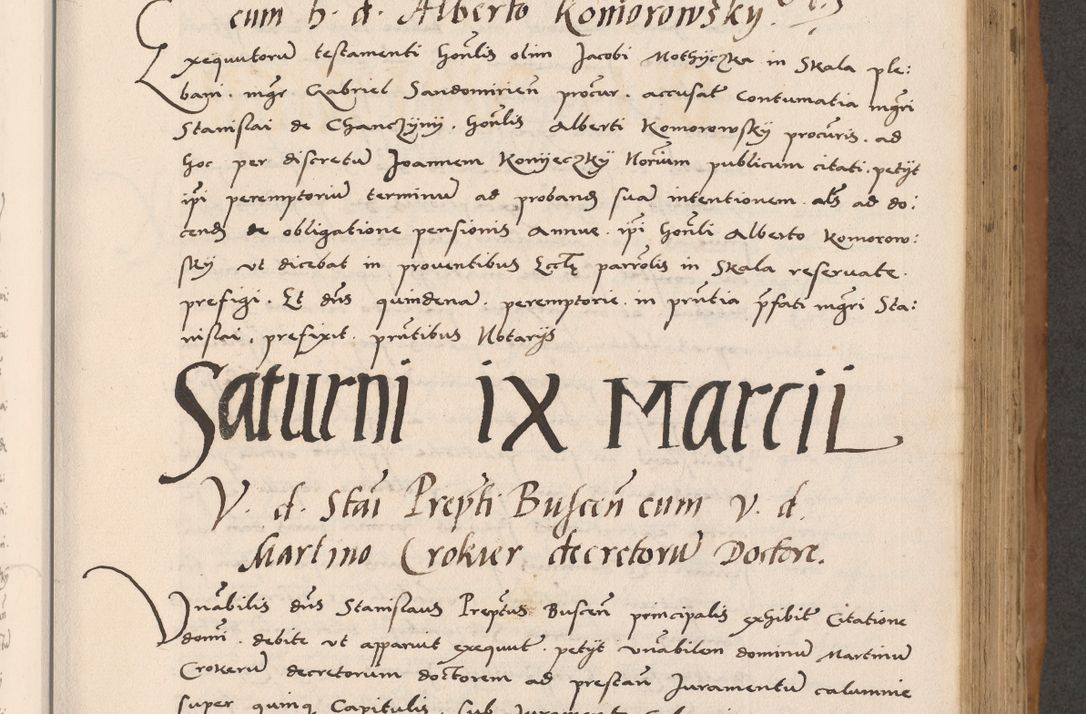 cum h. d. Alberto Komorowsky.
Exequutorũ testamenti honĩlis olim Jacobi Mothyczka in Skala ple:
bani. mgr Gabriel Sandomirieñ procũr. accusat contumatia mgri
Stanislai de Chanczyny. honĩlis Alberti Komorowsky procũris. ad
hoc per discretũ Joannem Konyeczky Norium publicum citati. petyt
ipĩ peremptoriũ terminũ ad proband suã intentionem. als ad do:
cend de obligatione pensionis Annue. ipĩ honĩli Alberto Komorow:
sky ut dicebat in proventibus Eccle parrolis in Skala reservate.
prefigi. Et dñs quindenã. peremptorie. in prñtia pfati mgri Sta:
nislai. prefixit. prñtibus Notarys
Saturni IX Marcii
V. d. Stañ Prepti Busceñ cum V. d.
Martino Crokier decretorũ Doctore.
Vnabilis dñs Stanislaus Preptus Busceñ principalis exhibit Citatione
domi. debite ut apparuit exequut. petyt vnabilem dominũ Martinũ
Crokerũ decretorum doctorem ad prestañ Juramentũ calumnie
super quinq Capitulis. sub Juramento